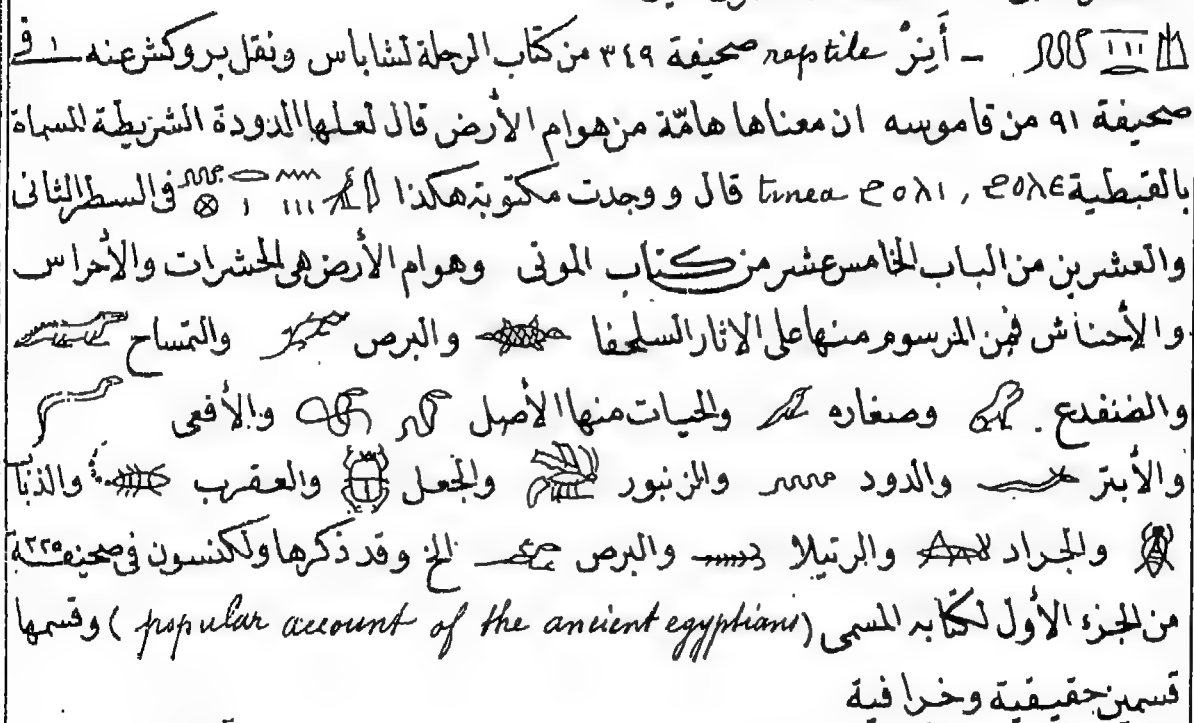 𓇋𓊃𓏥𓆙 ـ أَيِنرْ reptile صحيفة ٣٤٩ من كتاب الرحلة لشاباس ونقل بروكش عنه فى
صحيفة ٩١ من قاموسه ان معناها هامّة من هوام الأرض قال لعلها الدودة الشريطة المسماة
بالقبطية ϩⲟⲗⲓ , ϩⲟⲗⲉ tinea قال ووجدت مكتوبة هكذا فى السطر الثانى
والعشرين من الباب الخامس عشر من كتاب الموتى وهوام الأرض هى الحشرات والأحراس
والأحناش فمن المرسوم منها على الاثار السلحفا والبرص والتمساح
والضفدع . وصغاره والحيات منها الأصل والأفعى
والأبتر والدود والزنبور والجعل والعقرب والذباب
والجراد والرتيلا والبرص الخ وقد ذكرها ولكنسون فى صحيفة ٢٢٥
من الجزء الأول لكتابه المسمى (popular account of the ancient egyptians) وقسمها
قسمين حقيقية وخرافية